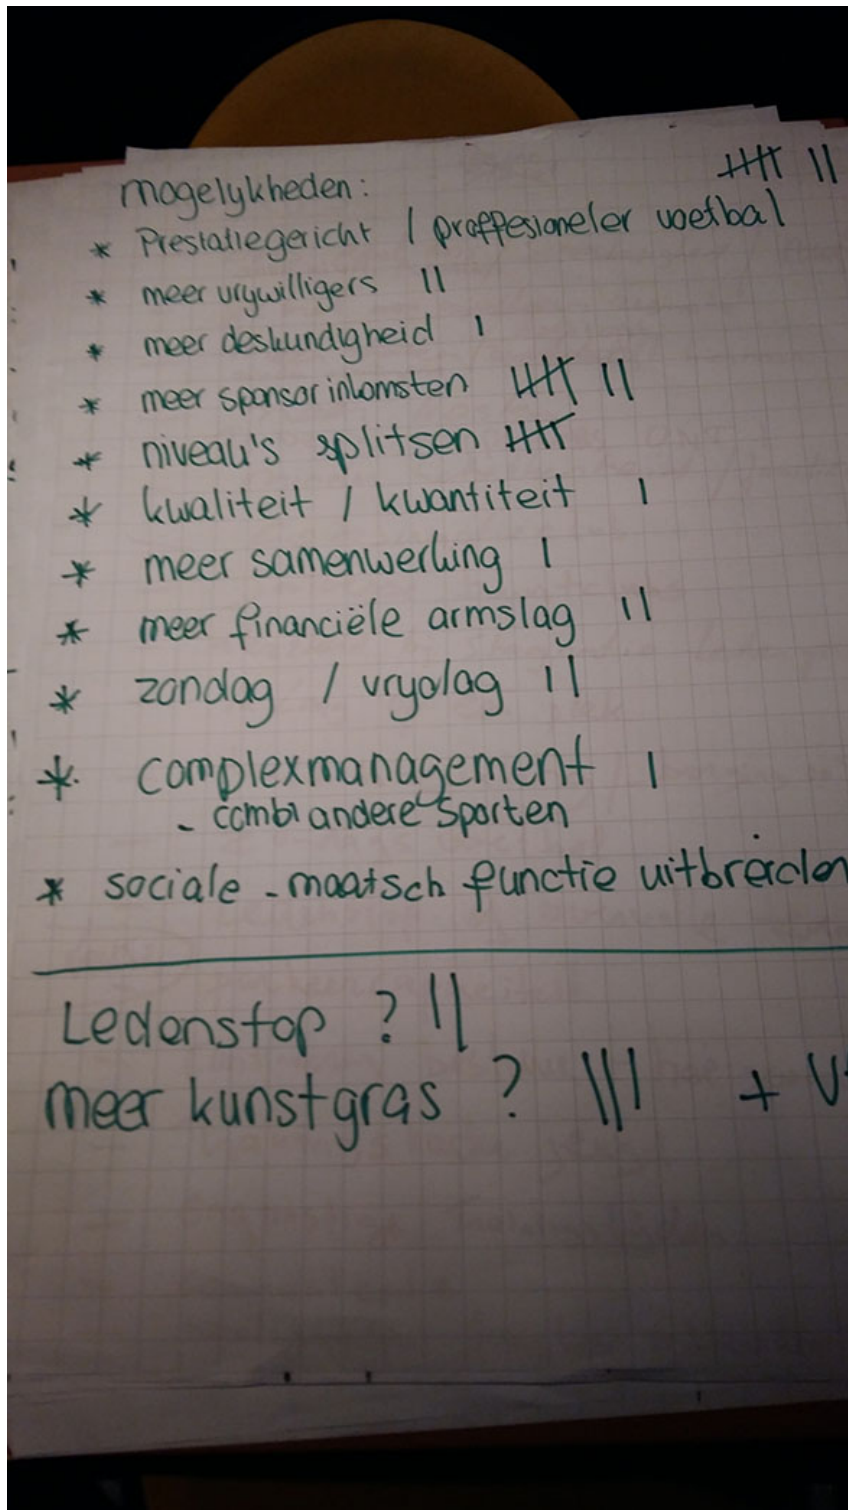 mogelykheden:
* Prestatiegericht / proffesioneler voetbal 卌 ||
* meer vrywilligers ||
* meer deskundigheid |
* meer sponsorinkomsten 卌 ||
* niveau's splitsen 卌
* kwaliteit / kwantiteit |
* meer samenwerking |
* meer financiële armslag ||
* zondag / vrydag ||
* complexmanagement |
- combi andere sporten
* sociale - maatsch functie uitbreiden
Ledenstop ? ||
meer kunstgras ? ||| +